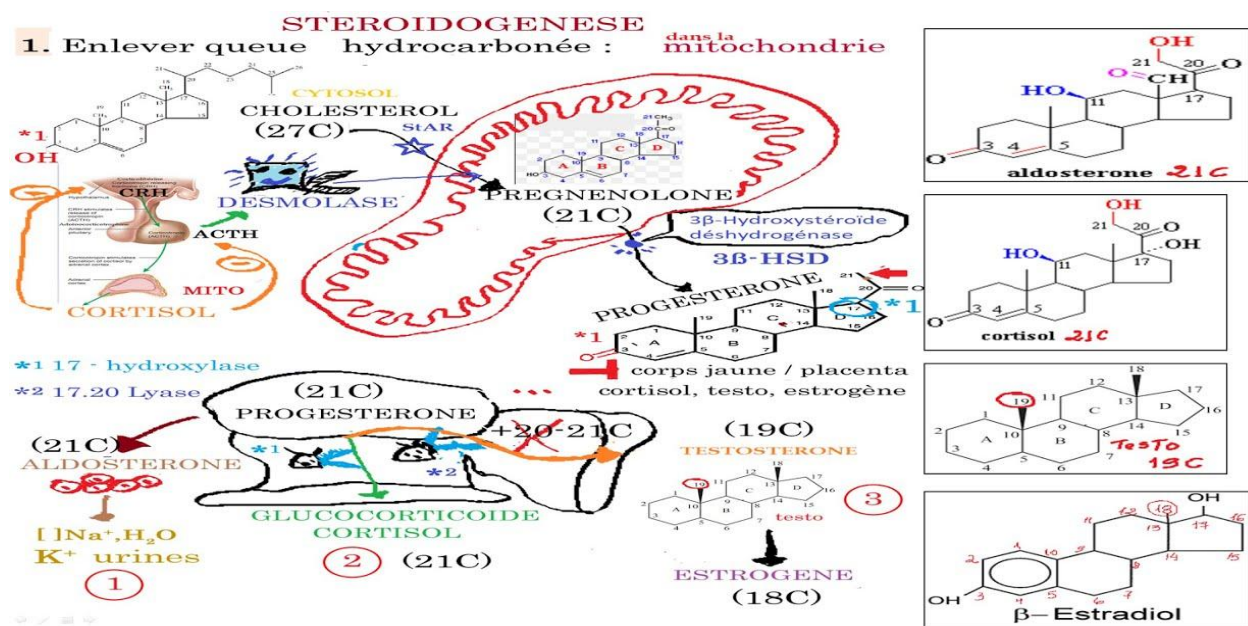 STEROIDOGENESE
1. Enlever queue hydrocarbonée : dans la mitochondrie
CYTOSOL
CHOLESTEROL
(27C)
StAR
*1
OH
CRH
DESMOLASE
ACTH
MITO
CORTISOL
PREGNENOLONE
(21C)
3β-Hydroxystéroïde
déshydrogénase
3ß-HSD
PROGESTERONE
*1
*1
corps jaune / placenta
cortisol, testo, estrogène
*1 17 - hydroxylase
*2 17.20 Lyase
(21C)
PROGESTERONE
...
+20-21C
*1
*2
(21C)
ALDOSTERONE
[ ]Na⁺,H₂O
K⁺ urines
1
GLUCOCORTICOIDE
CORTISOL
2 (21C)
(19C)
TESTOSTERONE
testo
3
ESTROGENE
(18C)
OH
21
20
O
CH
HO
11
17
O
3
4
5
aldosterone 21C
OH
21
20
O
HO
11
17
OH
O
3
4
5
cortisol 21C
18
12
17
11
13
D
16
19
C
1
14
15
2
10
9
8
A
B
7
3
5
4
6
TesTo
19C
OH
18
12
17
16
11
13
1
9
14
15
2
10
8
3
5
7
OH
4
6
β− Estradiol